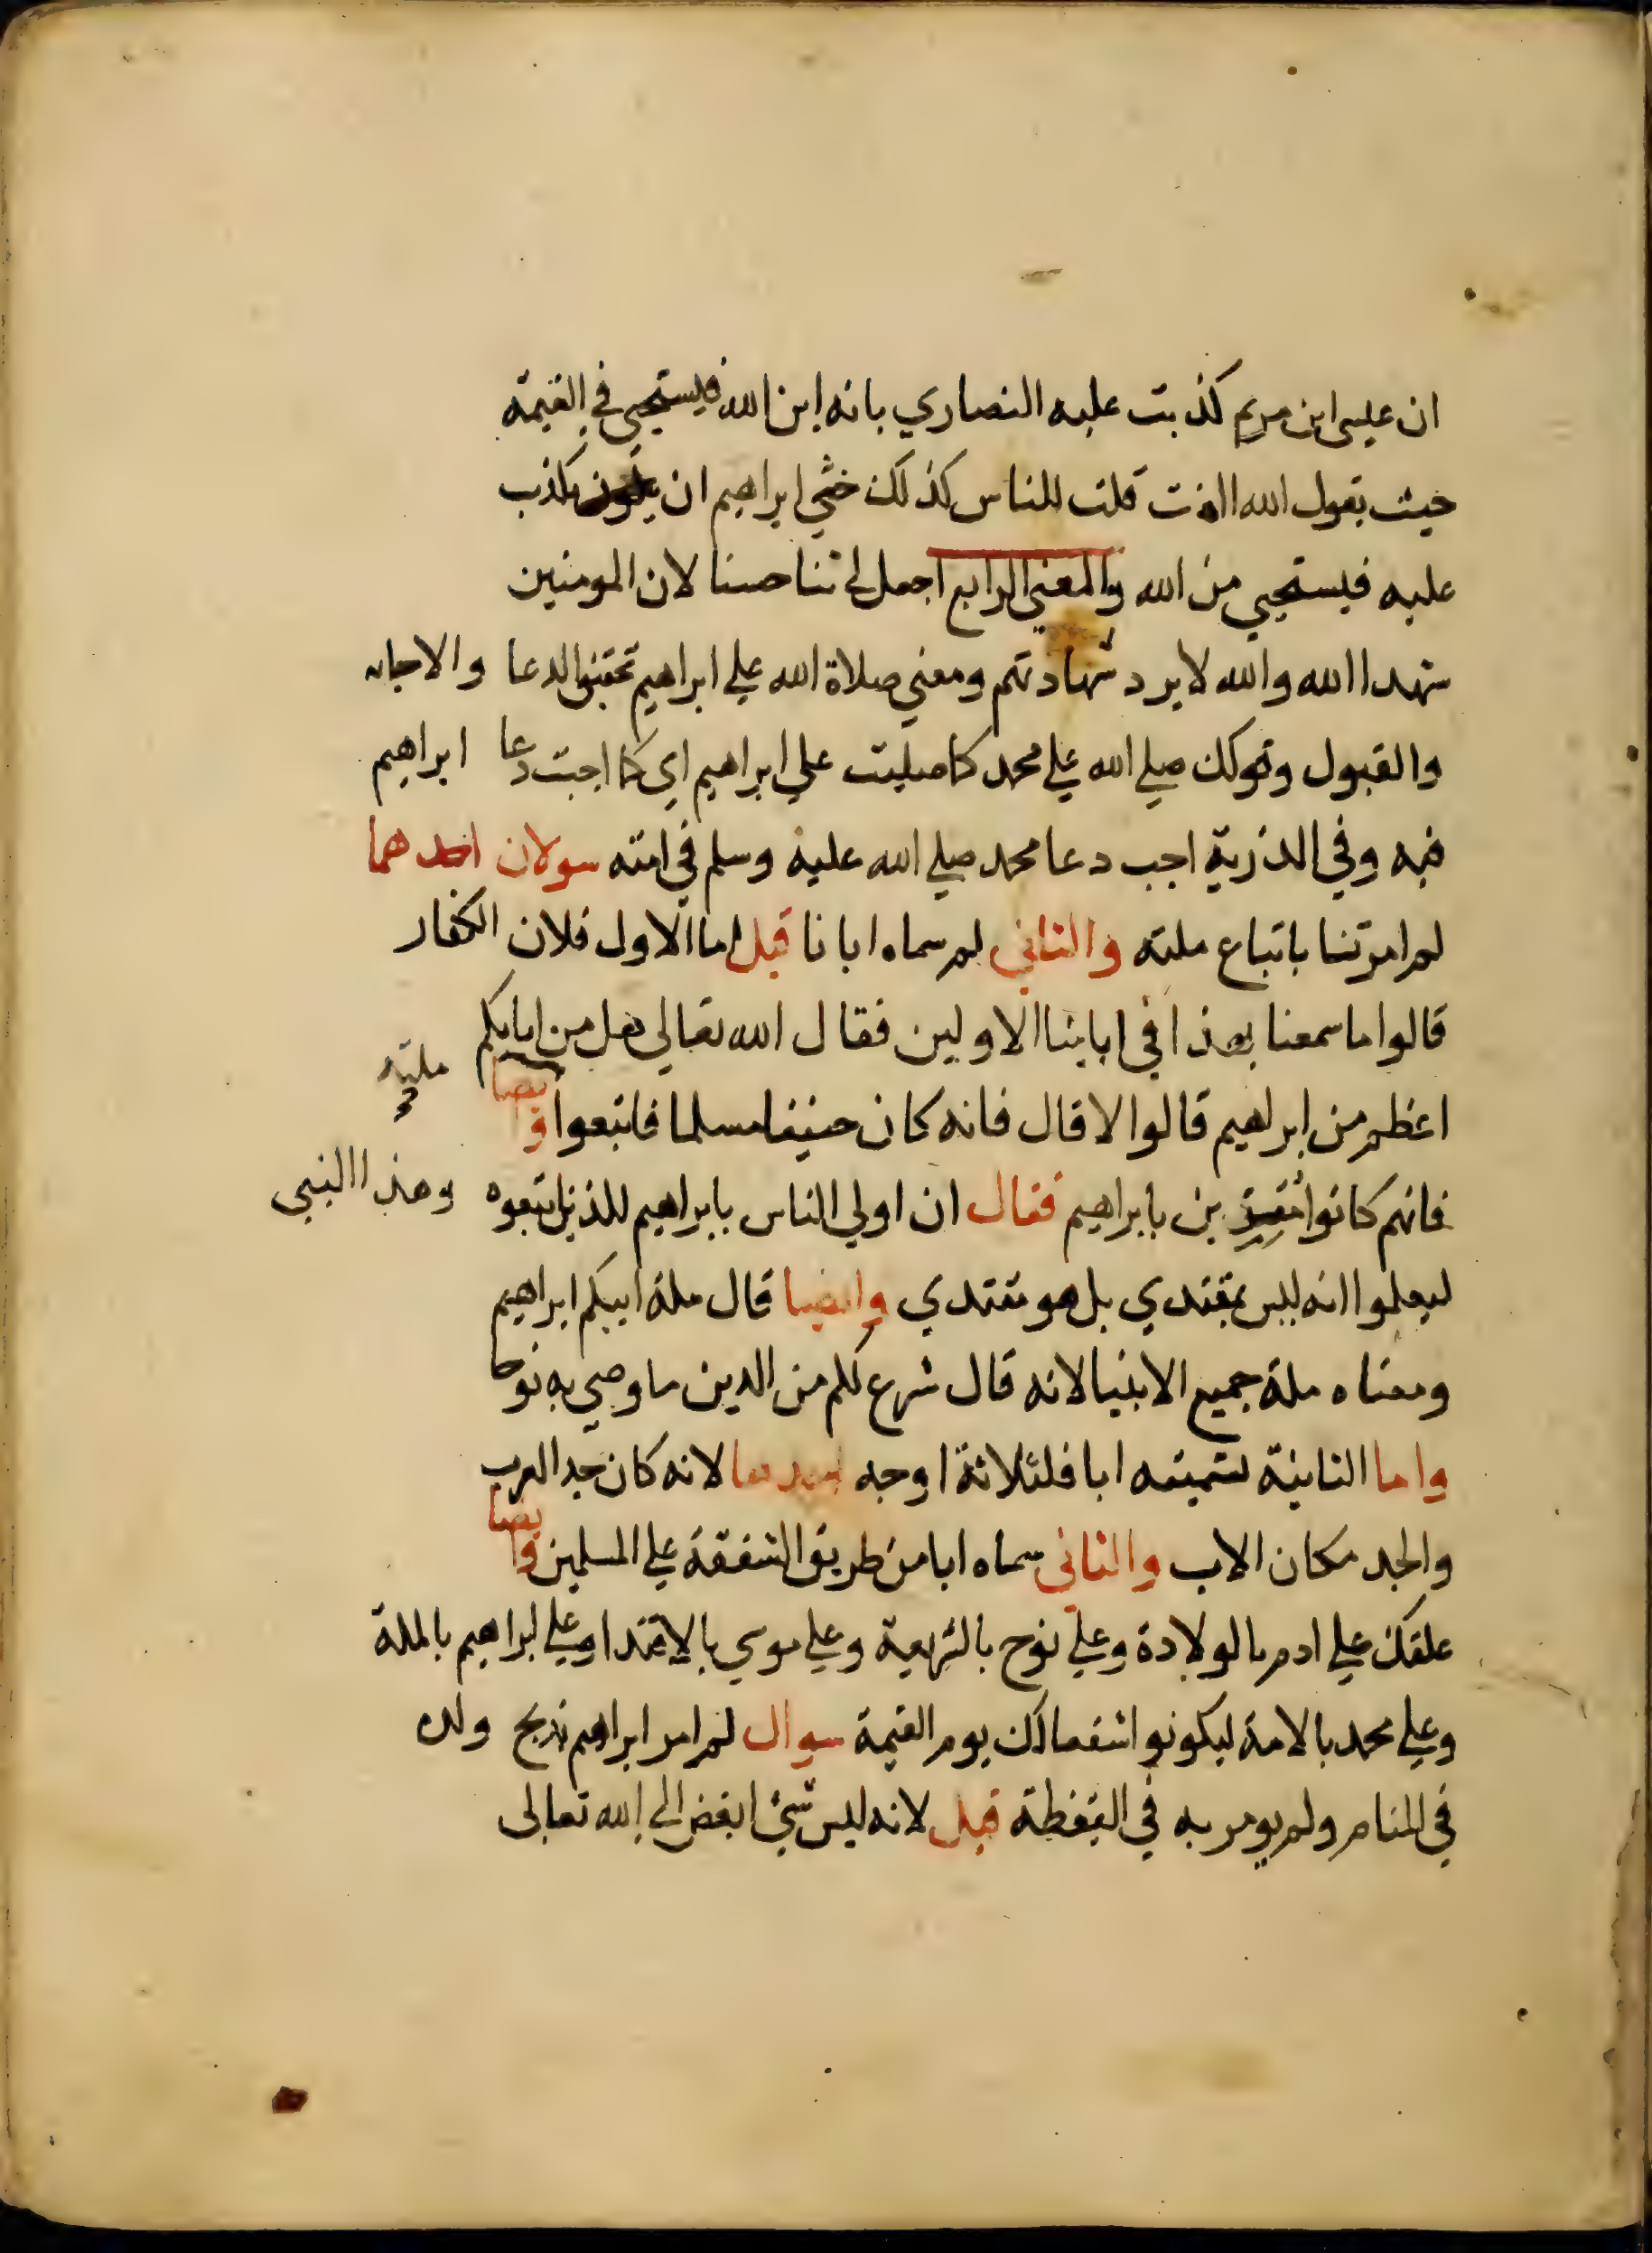 ان عيسى ابن مريم كذبت عليه النصاري بانه ابن الله فيستحيى في القيمة
حيث يقول الله اانت قلت للناس كذلك خشي ابراهيم ان يكذب
عليه فيستحيي من الله والمعني الرابع اجعل لي ثنا حسنا لان المومنين
شهدا الله والله لا يرد شهادتهم ومعني صلاة الله علي ابراهيم تحقيق الدعا والاجابه
والقبول وقولك صلي الله علي محمد كما صليت علي ابراهيم اي كما اجبت دعا ابراهيم
فيه وفي الذرية اجب دعا محمد صلي الله عليه وسلم في امته سولان احدهما
لم امرتنا باتباع ملته والثاني لم سماه ابا نا قيل اما الاول فلان الكفار
قالوا ما سمعنا بهذا في ابائنا الاولين فقال الله تعالى هل من ابايكم
اعظم من ابرهيم قالوا لا قال فانه كان حنيفا مسلما فاتبعوا ملته وايضا
فانهم كانوا بابراهيم فقال ان اولي الناس بابراهيم للذين اتبعوه وهذا النبي
ليعلموا انه ليس بمقتدي بل هو مقتدي وايضا قال ملة ابيكم ابراهيم
ومعناه ملة جميع الانبيا لانه قال شرع لكم من الدين ما وصي به نوحا
واما الثانية لتسميته ابا فلثلاثة اوجه احدهما لانه كان جد العرب
والجد مكان الاب والثاني سماه ابا من طريق الشفقة علي المسلمين وايضا
علقك علي ادم بالولادة وعلي نوح بالشريعة وعلي موسي بالاقتدا وعلي ابراهيم بالملة
وعلي محمد بالامة ليكونوا شفعا لك يوم القيمة سوال لم امر ابراهيم بذبح ولده
في المنام ولم يومر به في اليقظة قيل لانه ليس شئ ابغض الى الله تعالى